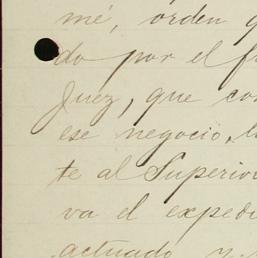 mé, orden
do por el
Juez, que con
ese negocio,
te al Superior
va el expedi
actuado y